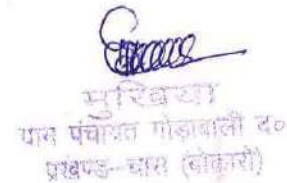 मुखिया
ग्राम पंचायत गोड़ाबाली द०
प्रखण्ड-चास (बोकारो)